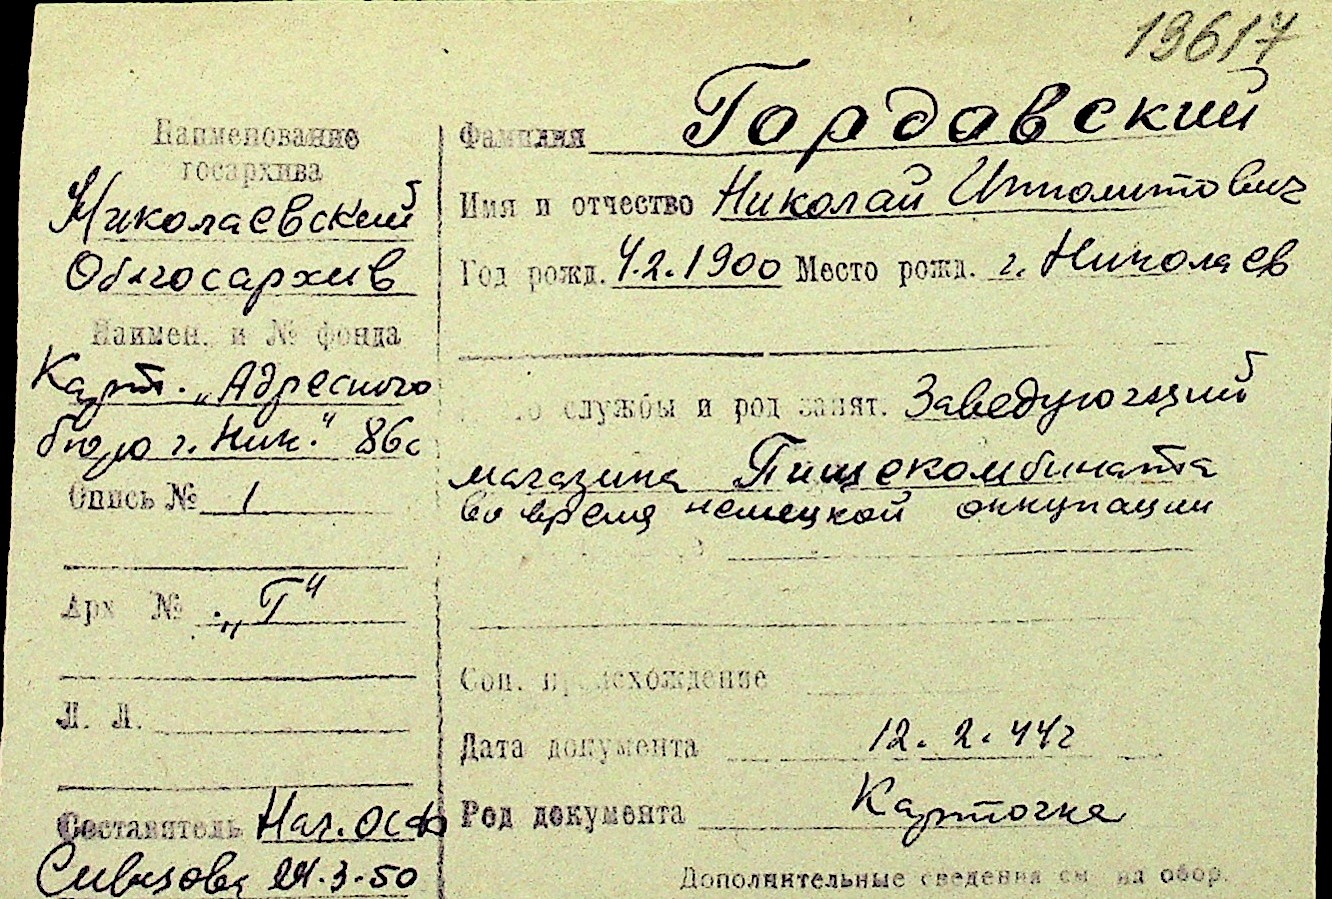 19617
Наименование
госархива
Николаевский
Облгосархив
Наимен. и № фонда
Карт. „Адресного
бюро г. Ник." 86с
Опись № 1
Арх № „Г"
Л. Л.
Составитель Нач. ОСФ
24.3.50
Фамилия Гордовский
Имя и отчество Николай Ипполитович
Год рожд. 4.2.1900 Место рожд. г. Николаев
службы и род занят. Заведующий
магазина Пищекомбината
во время немецкой оккупации
Соц. происхождение
Дата документа 12.2.44г
Род документа Карточка
Дополнительные сведения см на обор.